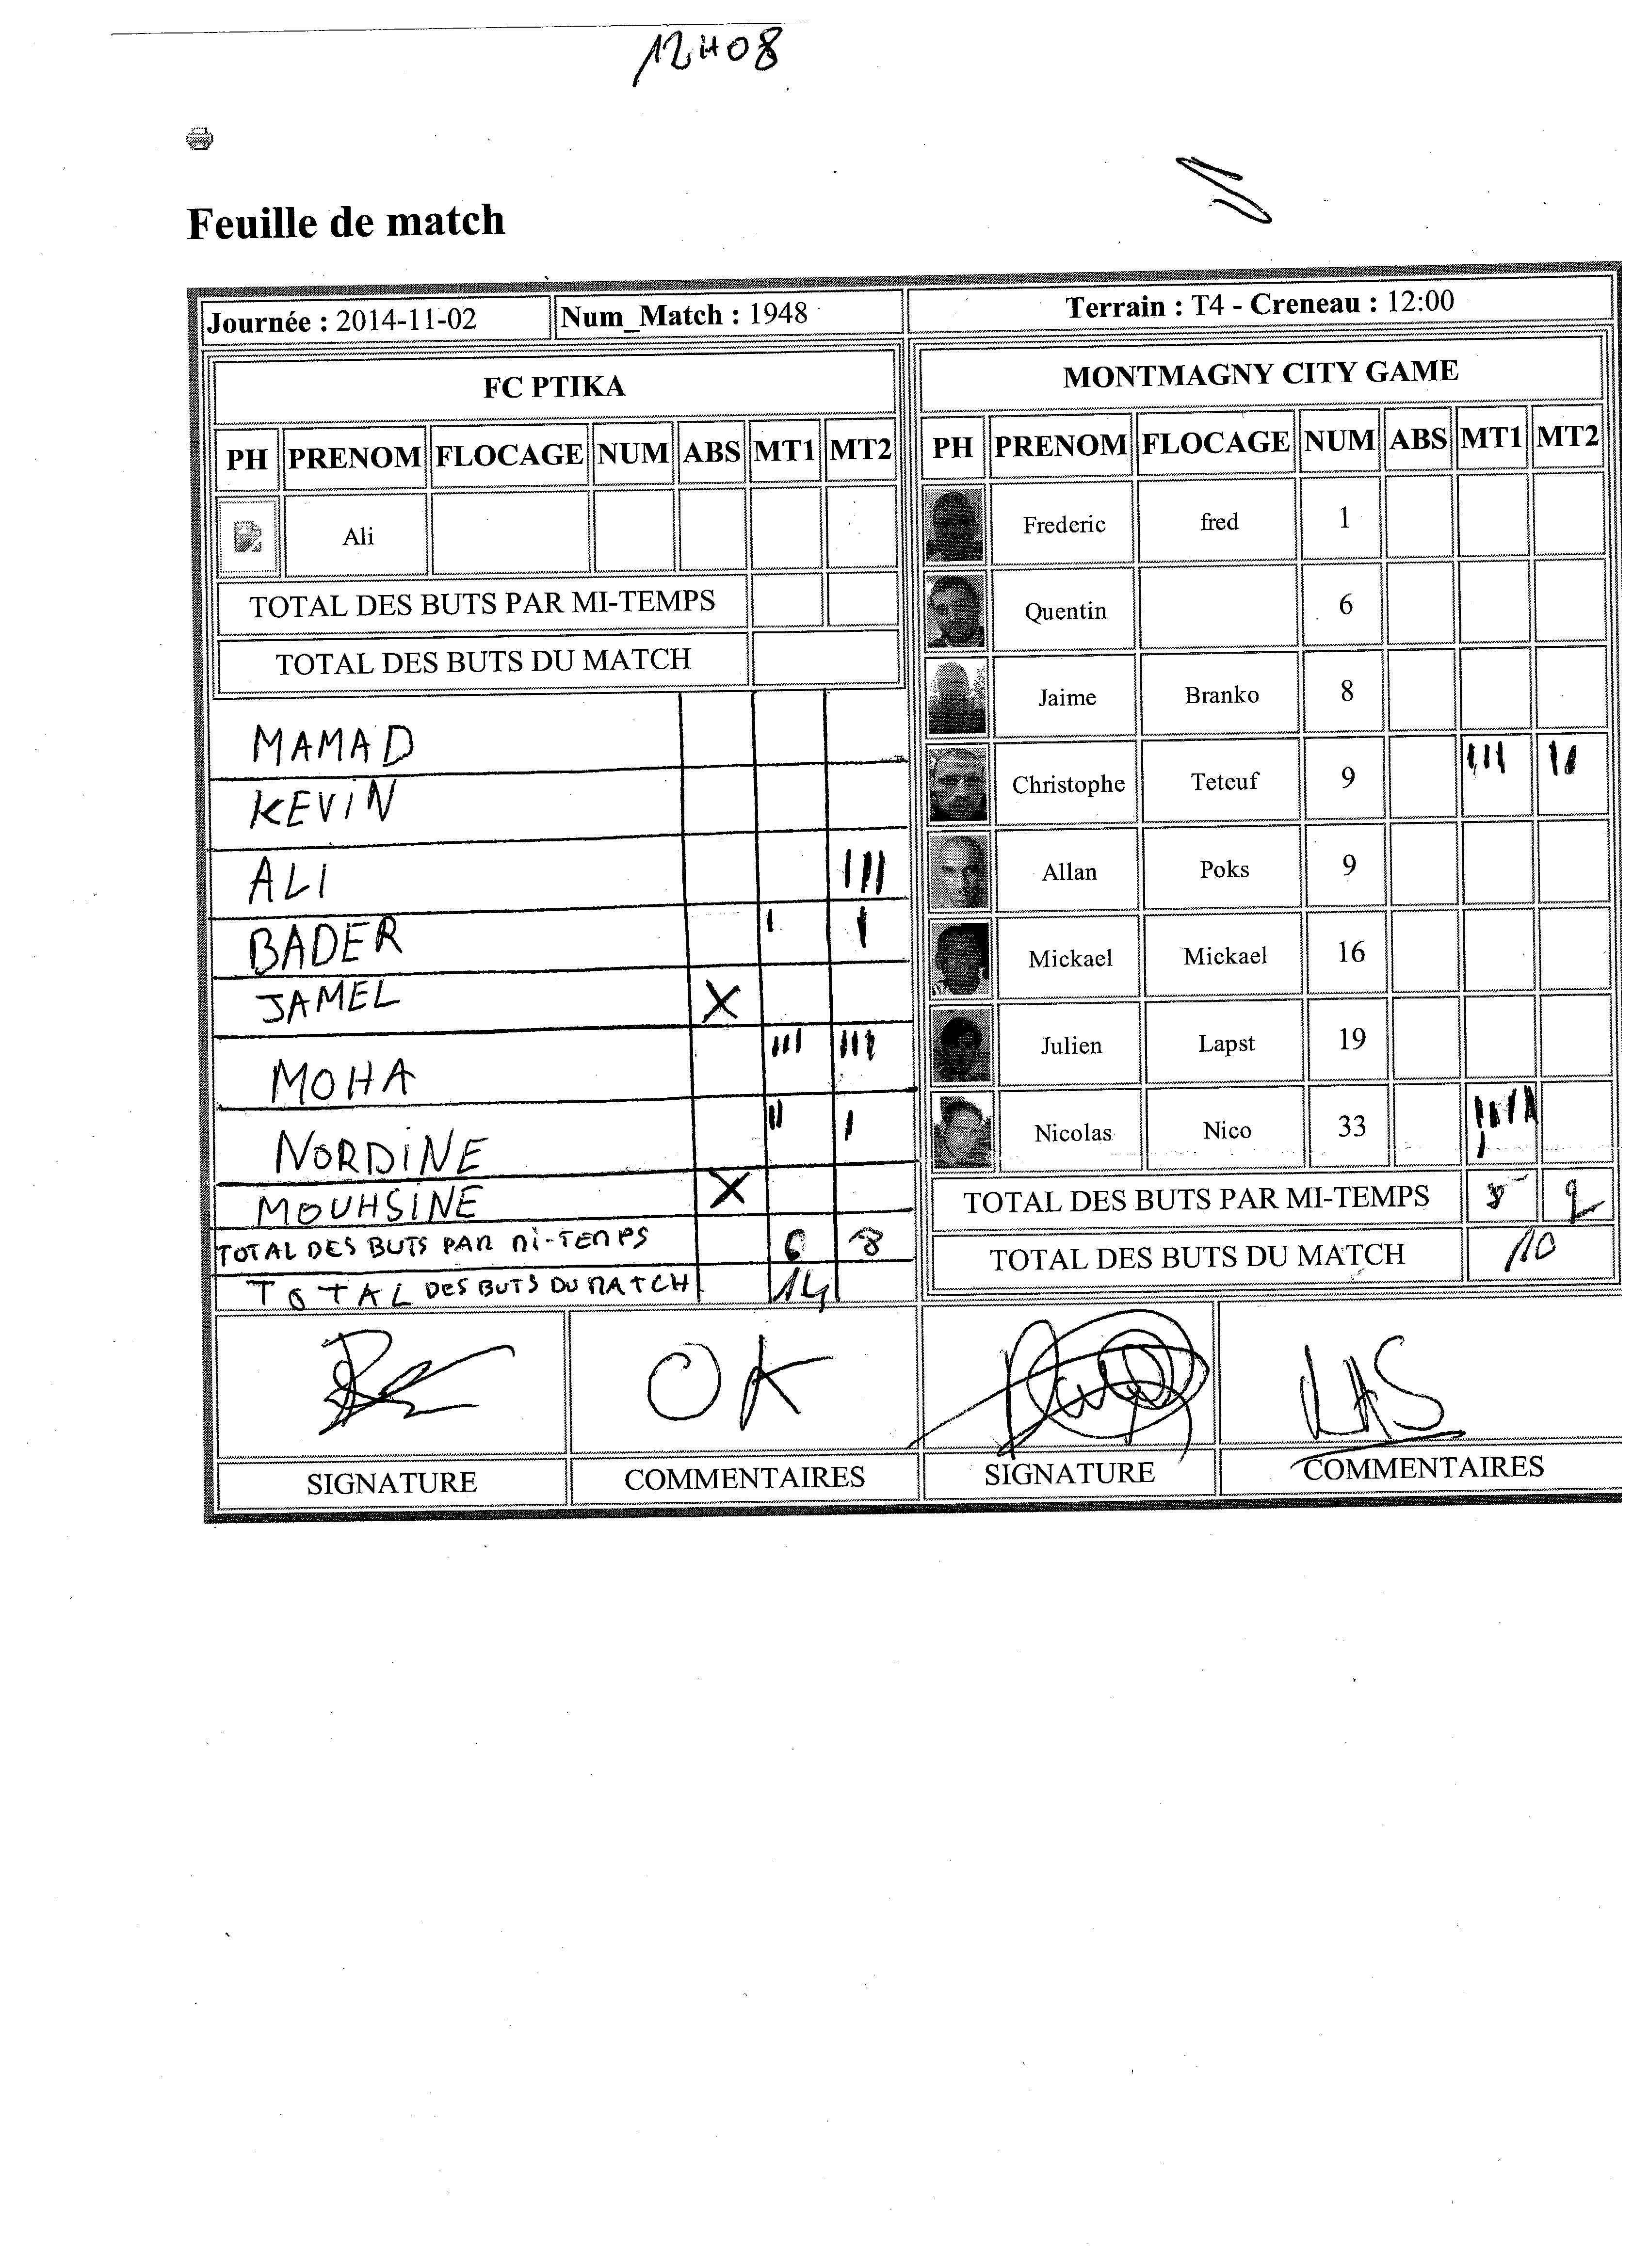 12H08
Feuille de match
Journée : 2014-11-02 Num_Match : 1948 Terrain : T4 - Creneau : 12:00
FC PTIKA
PH PRENOM FLOCAGE NUM ABS MT1 MT2
Ali
TOTAL DES BUTS PAR MI-TEMPS
TOTAL DES BUTS DU MATCH
MAMAD
KEVIN
ALI III
BADER I I
JAMEL X
MOHA III III
NORDINE II I
MOUHSINE X
TOTAL DES BUTS PAR MI-TEMPS 6 8
TOTAL DES BUTS DU MATCH 14
OK
SIGNATURE COMMENTAIRES
MONTMAGNY CITY GAME
PH PRENOM FLOCAGE NUM ABS MT1 MT2
Frederic fred 1
Quentin 6
Jaime Branko 8
Christophe Teteuf 9 III II
Allan Poks 9
Mickael Mickael 16
Julien Lapst 19
Nicolas Nico 33
TOTAL DES BUTS PAR MI-TEMPS 8 2
TOTAL DES BUTS DU MATCH 10
SIGNATURE COMMENTAIRES